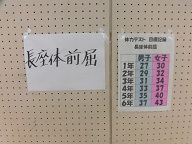 長座体前屈
体力テスト 目標記録
長座体前屈
男子 女子
1年 27 30
2年 29 32
3年 31 34
4年 33 37
5年 35 40
6年 37 43